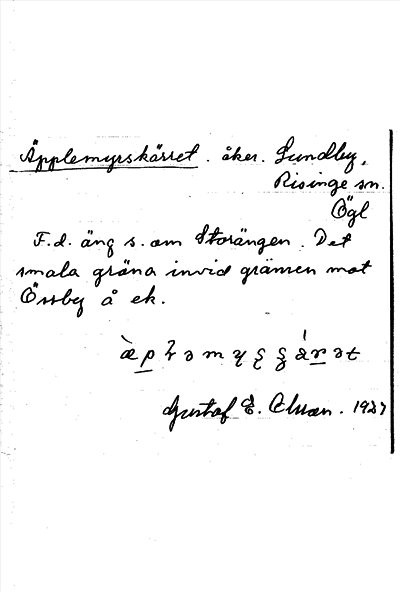 Äpplemyrskärret. åker. Lundby,
Risinge sn.
Ögl
F.d. äng s. om Storängen. Det
smala gröna invid gränsen mot
Össby å ek.
Gustaf E. 1927